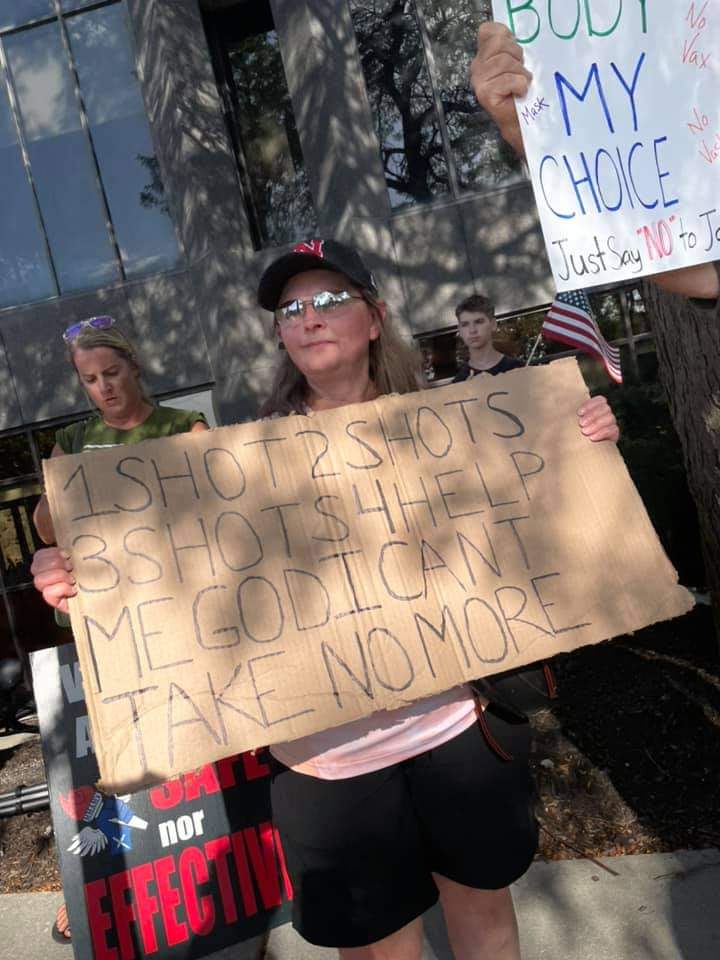 BODY
MY
CHOICE
Mask
No
Vax
No
Just Say "NO" to
N
1 SHOT 2 SHOTS
3 SHOTS 4 HELP
ME GOD I CANT
TAKE NO MORE
SAFE
nor